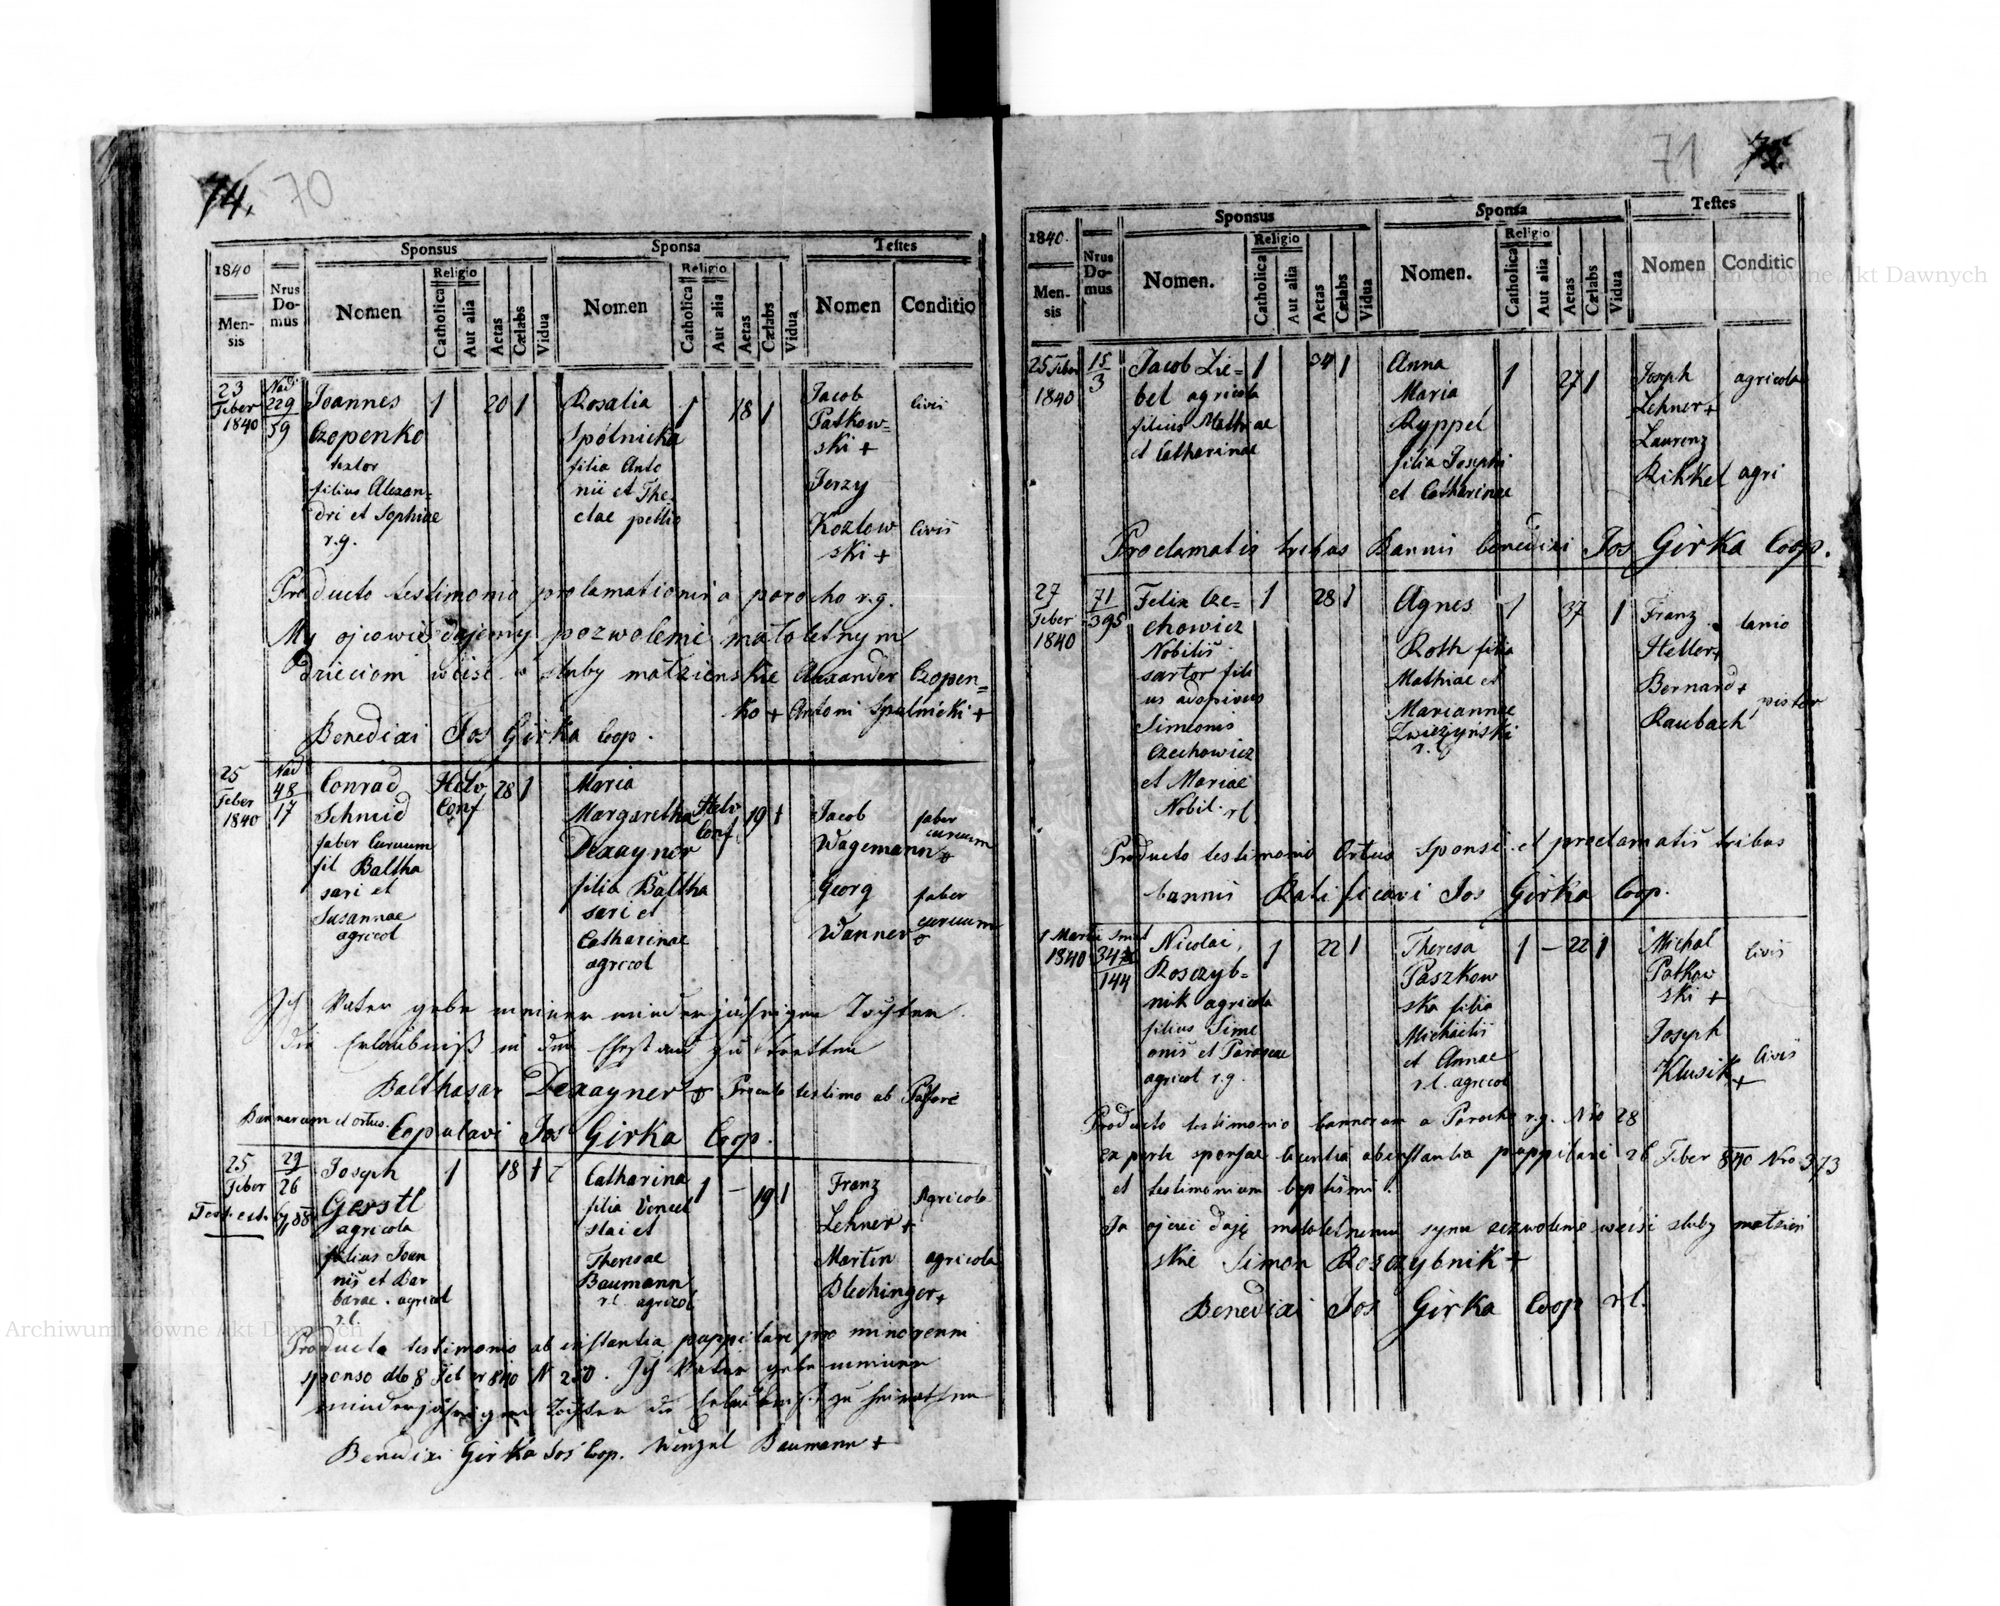 74. 70
Sponsus Sponsa Testes
1840 Nrus Domus Religio Religio
Mensis Nomen Catholica Aut alia Aetas Cælabs Vidua Nomen Catholica Aut alia Aetas Cælabs Vidua Nomen Conditio
23
Feber
1840
Nad
229
59
Joannes
Czopenko
textor
filius Alexan=
dri et Sophiae
r.g.
1 20 1
Rosalia
Spólnicka
filia Anto
nii et The
clae pellio
1 18 1
Jacob
Patkow=
ski +
Jerzy
Kozłow
ski +
civis
civis
Producto testimonio proclamationis a parocho r.g.
My ojcowie dajemy pozwolenie małoletnym
dzieciom wejść w śluby małzienskie Alexander Czopen=
ko + Antoni Spulnicki +
Benedixi Jos Girka Coop.
25
Feber
1840
Nad
48
17
Conrad
Schmid
faber Curuum
fil Baltha
sari et
Susannae
agricol
Helv
Conf
28 1
Maria
Margaretha
Dexayner
filia Baltha
sari et
Catharinae
agricol
Helv
Conf
19 1
Jacob
Wagemann
Georg
Wanner
faber
curuum
faber
curuum
Ich Vater gebe meiner minderjährigen Tochter
die Erlaubniß in den Ehestand zu tretten
Balthasar Dexayner Producto testimo ab Pastore
Bannorum et ortus. Copulavi Jos Girka Coop.
25
Feber
29
26
Joseph
Gerstl
agricola
filius Joan
nis et Bar
barae agricol
r.l.
1 18 1
Catharina
filia Vencel
slai et
Theresae
Baumann
r.l. agricol
1 – 19 1
Franz
Lehner +
Martin
Blechinger +
Agricola
agricola
Producto testimonio ab instantia puppilare pro minorenni
sponso dto 8 Feber 840 N 250. Ich Vater gebe meiner
minderjährigen Tochter die Erlaubniß zu heirathen
Benedixi Girka Jos Coop. Wenzel Baumann +
71
Sponsus Sponsa Testes
1840. Nrus Domus Religio Religio
Mensis Nomen. Catholica Aut alia Aetas Cælabs Vidua Nomen. Catholica Aut alia Aetas Cælabs Vidua Nomen Conditio
25 Feber
1840
15
3
Jacob Lie=
bel agricola
filius Mathiae
et Catharinae
1 34 1
Anna
Maria
Ryppel
filia Josephi
et Catharinae
1 27 1
Joseph
Lehner +
Laurenz
Rikkel
agricola
agri
Proclamatis tribus Bannis benedixi Jos Girka Coop.
27
Feber
1840
71
395
Felix Cze=
chowicz
Nobilis
sartor fili
us adopivus
Simeonis
Czechowicz
et Mariae
Nobil. r.l.
1 28 1
Agnes
Roth filia
Mathiae et
Mariannae
r.l.
1 37 1
Franz
Heller +
Bernard +
Raubach
lanio
pistor
Producto testimonio Ortus Sponsi et proclamatis tribus
bannis Ratificavi Jos Girka Coop.
1 Martii
1840
347
144
Nicolai
Rosczyb=
nik agricola
filius Sime
onis et Parascae
agricol r.g.
1 22 1
Theresa
Paszkow
ska filia
Michaelis
et Annae
r.l. agricol
1 – 22 1
Michał
Patkow
ski +
Joseph
Klusik +
civis
civis
Producto testimonio bannorum a Parocho r.g. Nro 28
ex parte sponsae licentia ab instantia puppilari 26 Feber 840 Nro 373
et testimonium baptismi.
Ja ojciec daję małoletnemu synu zezwolenie wejść śluby małzien
skie Simon Rosczybnik +
Benedixi Jos Girka Coop r.l.
Archiwum Główne Akt Dawnych
Archiwum Główne Akt Dawnych